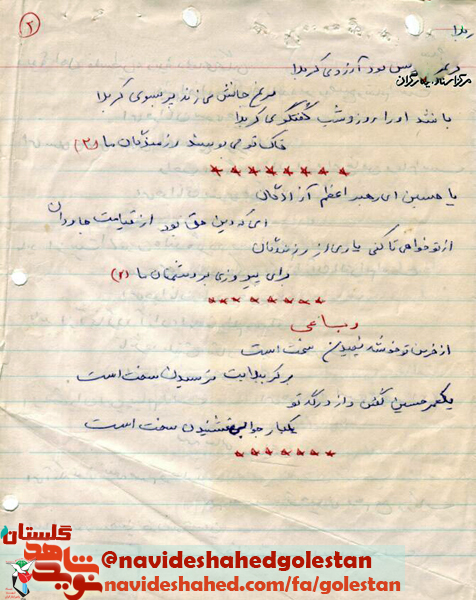 ۲
کربلا
بس بود آرزوی کربلا
مرکز اسناد ایثارگران
مرغ جانش می زند پر سوی کربلا
باشد او را روز و شب گفتگوی کربلا
خاک تو می بوسند رزمندگان ما (۲)
********
یا حسین ای رهبر اعظم آزادگان
ای که دین حق بود از قیامت جاودان
از تو خواهم تا کنی یاری از رزمندگان
برای پیروزی بر دشمنان ما (۲)
********
رباعی
از خرمن تو خوشه نچیدن سخت است
بر کربلایت نرسیدن سخت است
یکعمر حسین گفتن و از درگه تو
یکبار جوابی نشنیدن سخت است
*******
گلستان
نوید شاهد
@navideshahedgolestan
navideshahed.com/fa/golestan